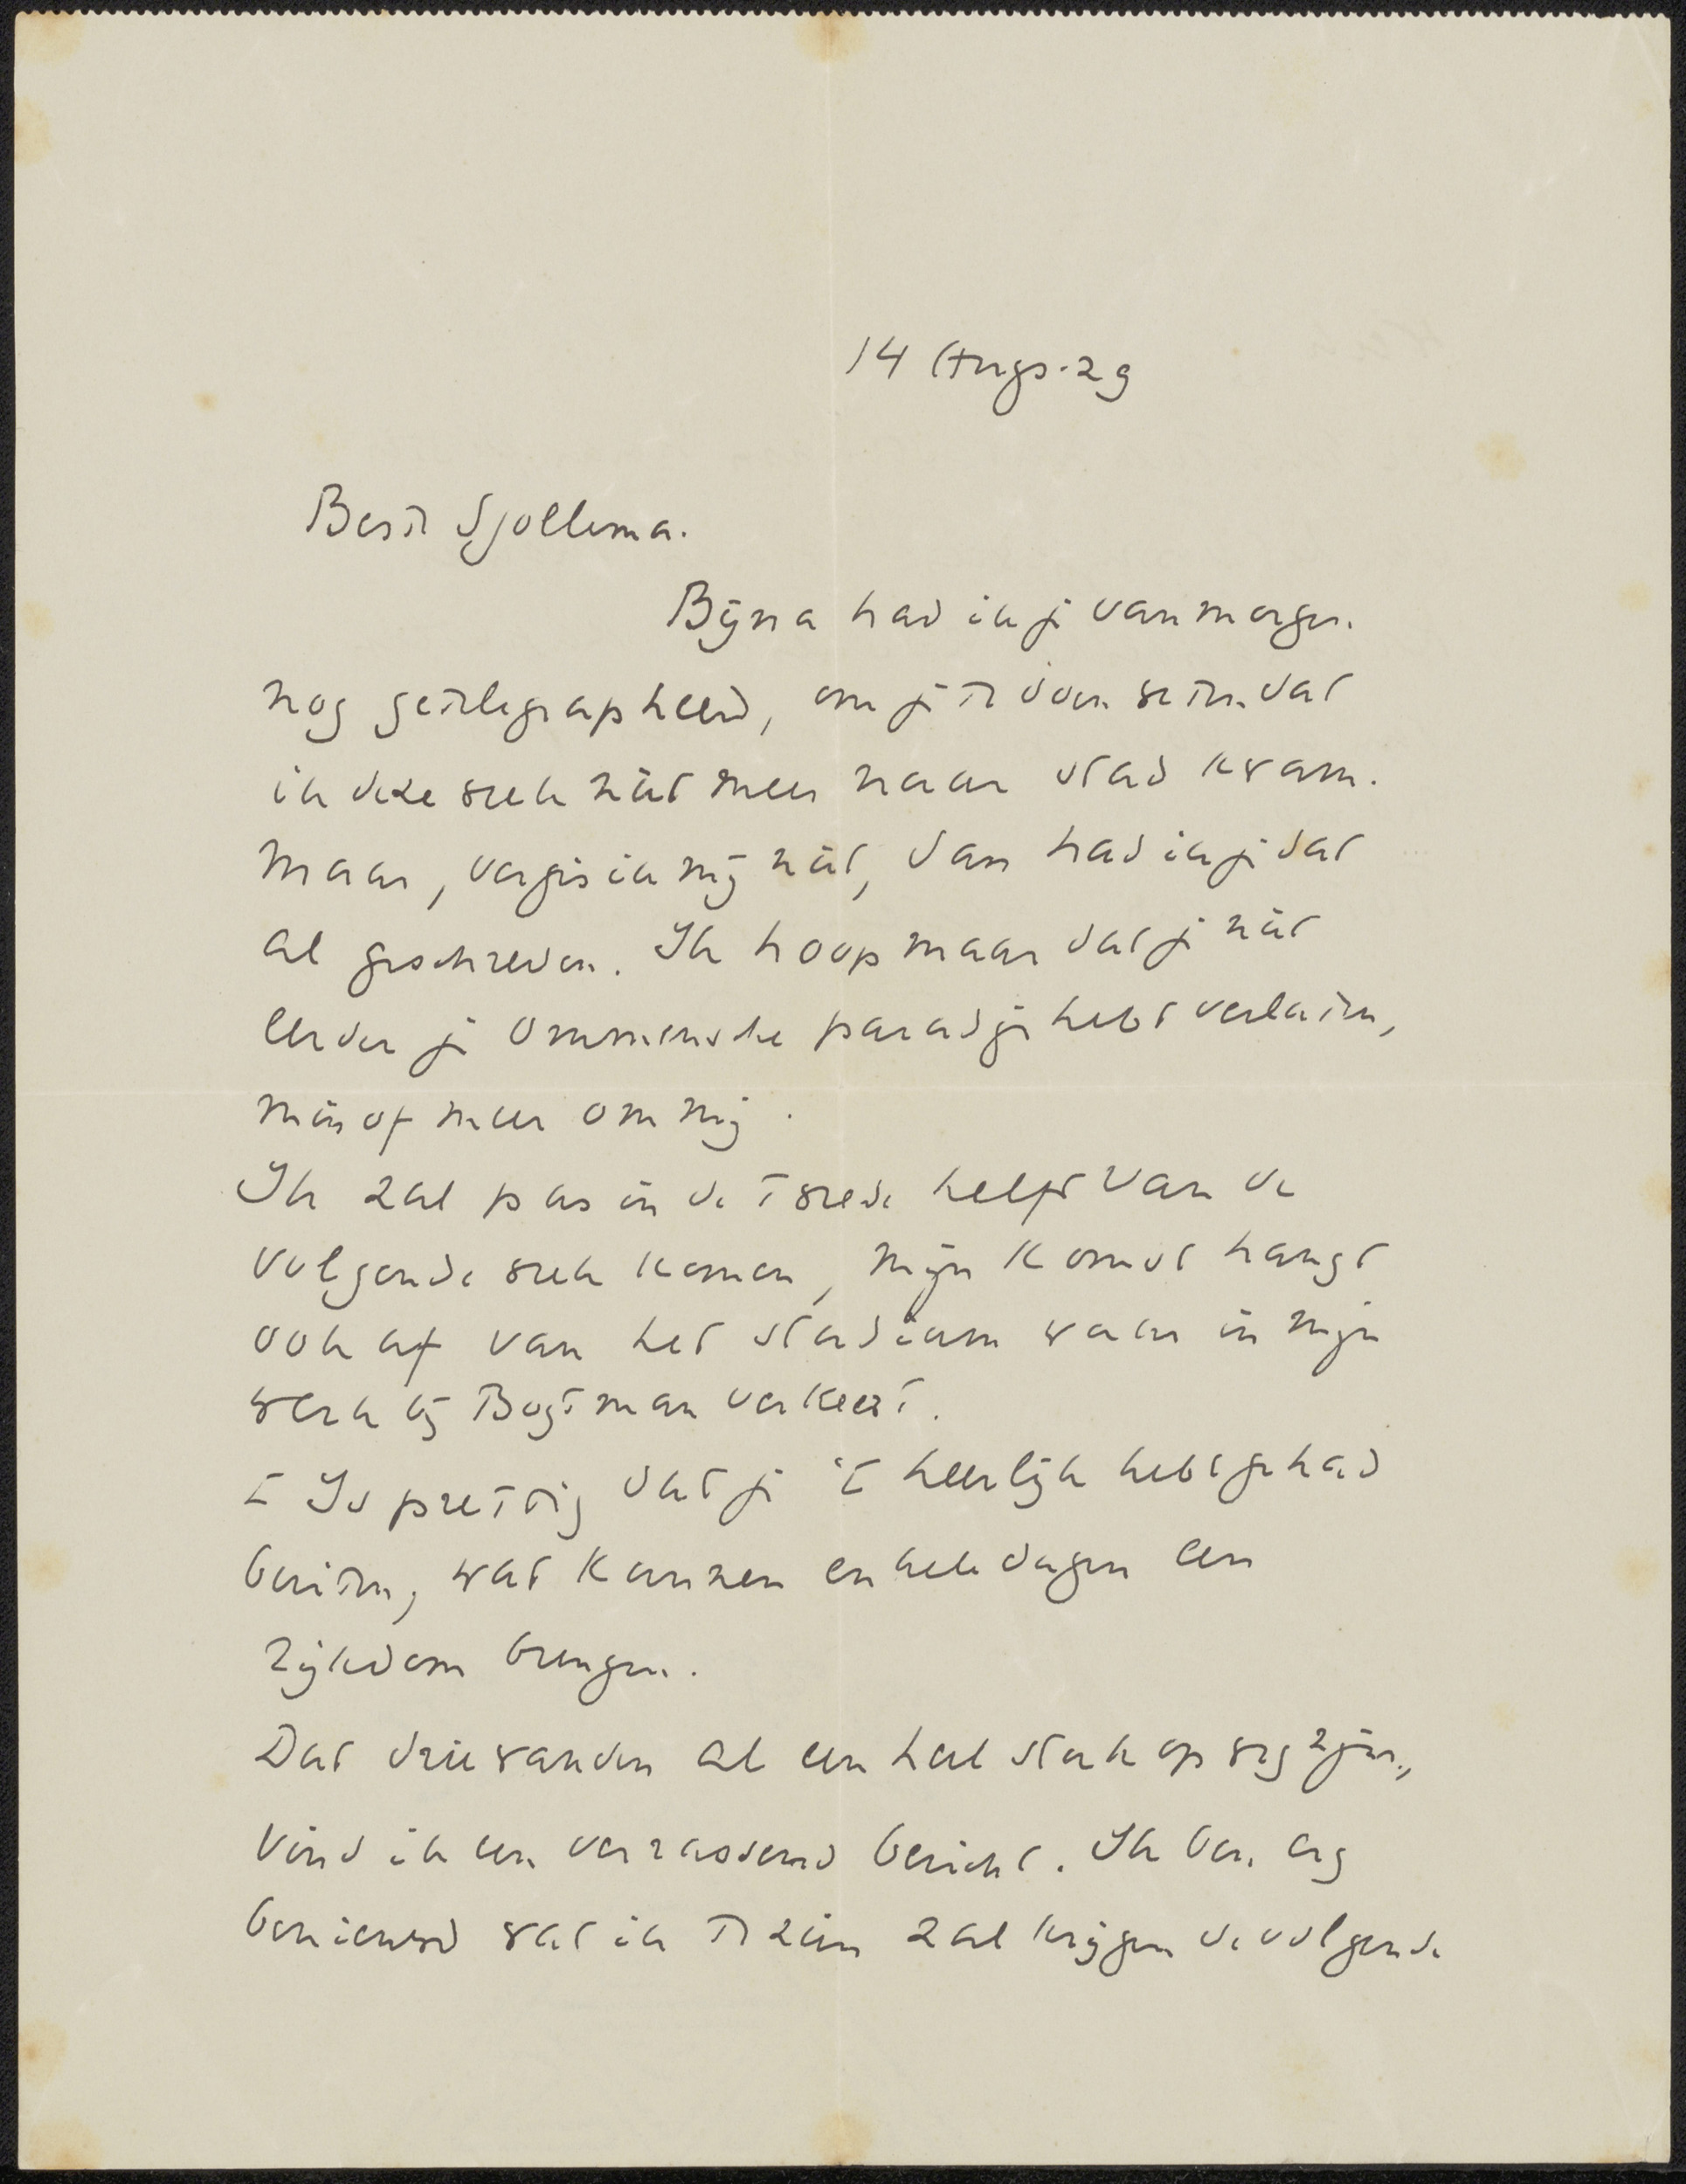 14 Augs. 29
Beste Sjollema.
Bijna had ik je vanmorgen
nog getelegrapheerd, om je te doen weten dat
ik deze week niet meer naar stad kwam.
Maar, vergis ik mij niet, dan had ik je dat
al geschreven. Ik hoop maar dat je niet
eerder je Ommensche paradijs hebt verlaten,
min of meer om mij.
Ik zal pas in de tweede helft van de
volgende week komen, mijn komst hangt
ook af van het stadium waar in mijn
werk bij Bogtman verkeert.
't Is prettig dat je 't heerlijk hebt gehad
buiten, wat kunnen enkele dagen een
rijkdom brengen.
Dat drie wanden al een heel stuk op weg zijn,
vind ik een verrassend bericht. Ik ben erg
benieuwd wat ik te zien zal krijgen de volgende